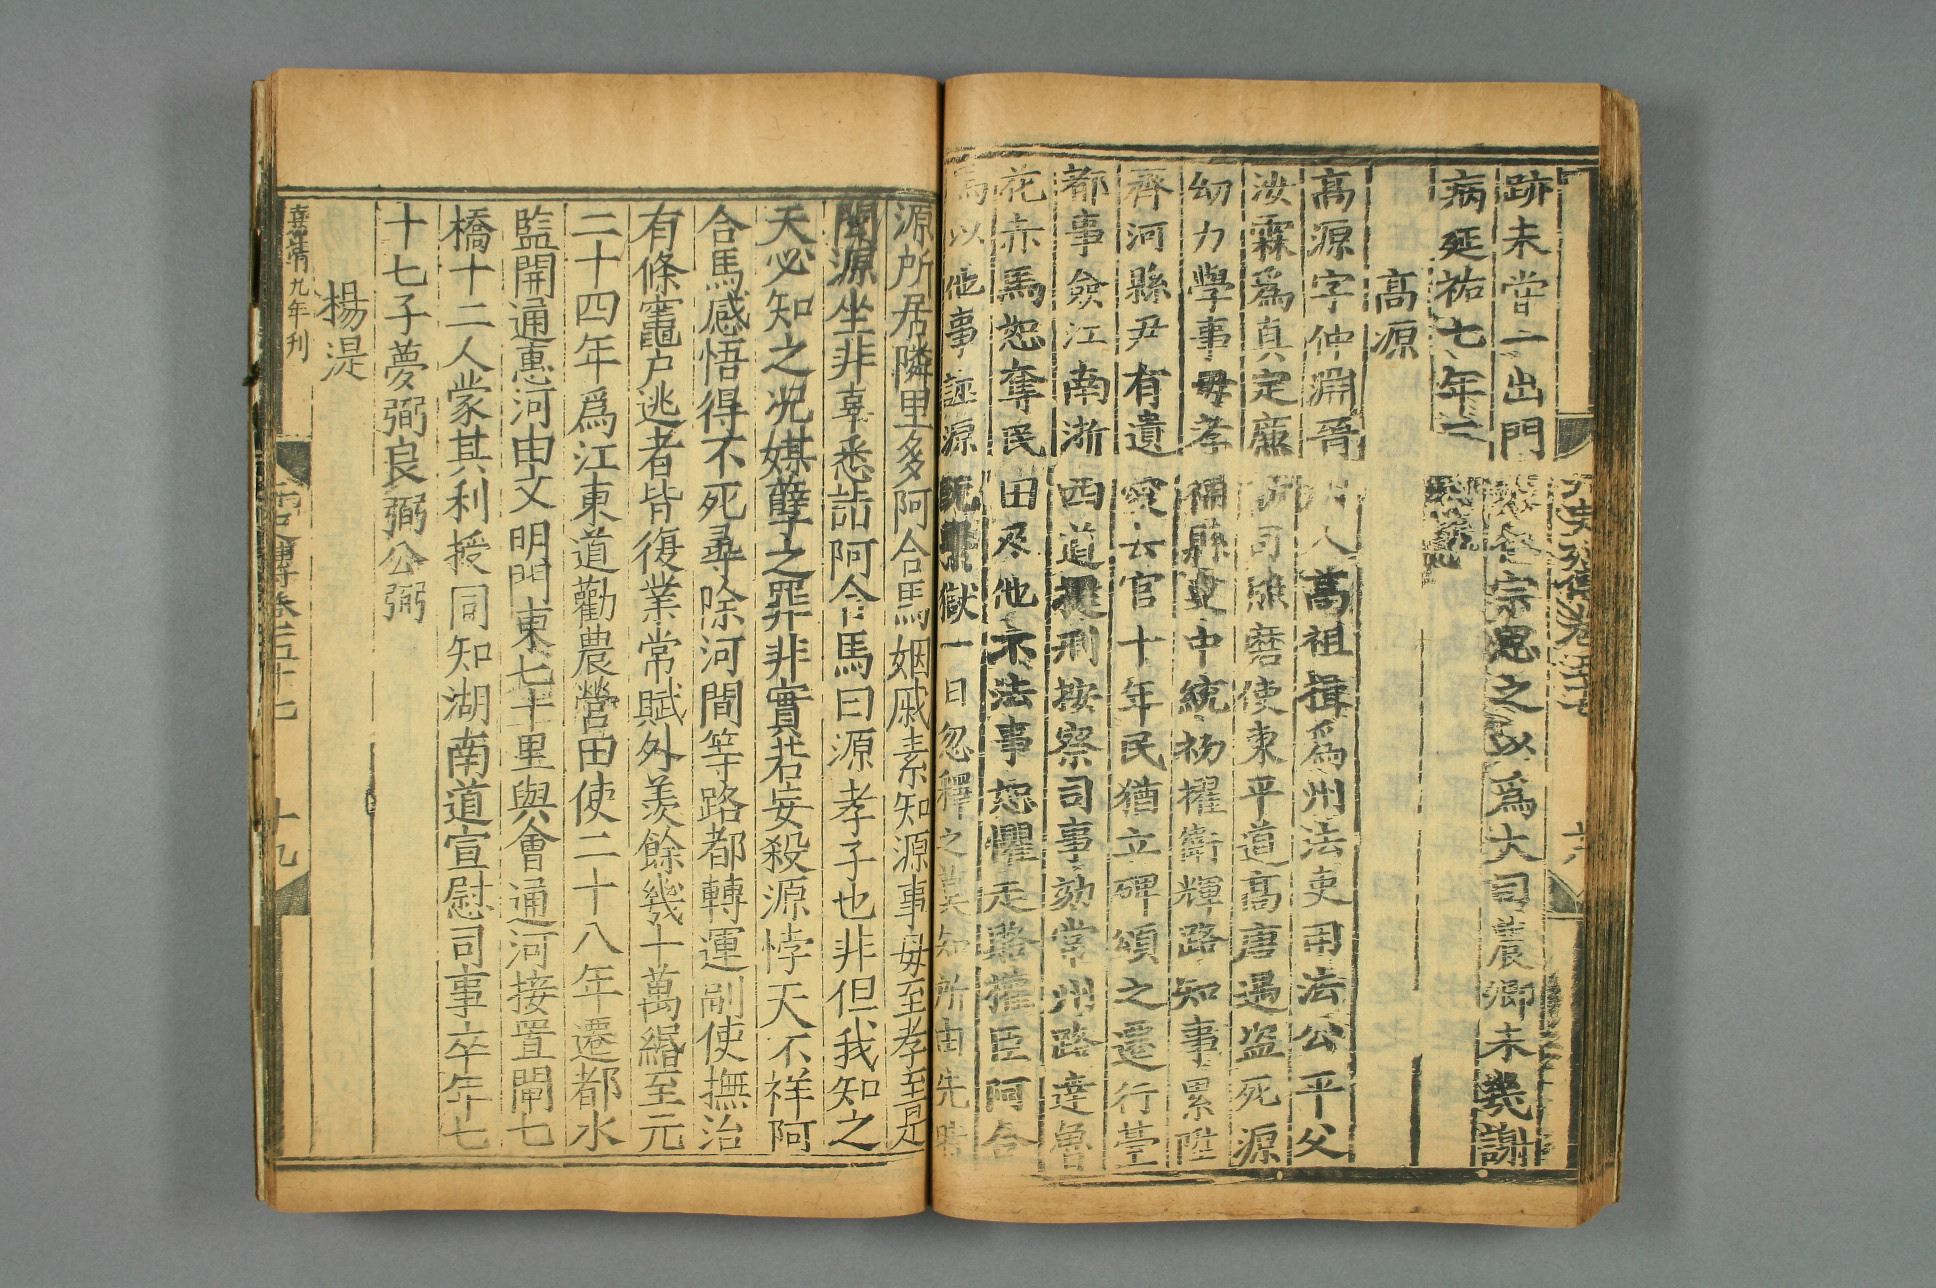 跡未嘗一出門 宗思之以爲大司農卿未幾謝
病延祐七年
高源
高源字仲淵晉州人高祖揖爲州法吏用法公平父
汝霖爲真定廉訪司照磨使東平道高唐遇盜死源
幼力學事母孝補縣吏中統初擢衛輝路知事累陞
齊河縣尹有遺愛去官十年民猶立碑頌之遷行臺
都事僉江南浙西道提刑按察司事劾常州路達魯
花赤馬恕奪民田及他不法事恕懼走賂權臣阿合
馬以他事誣源 獄一日忽釋之莫知所由先時
源所居隣里多阿合馬姻戚素知源事母至孝至是
聞源坐非辜悉詣阿合馬曰源孝子也非但我知之
天必知之况媒孽之罪非實若妄殺源悖天不祥阿
合馬感悟得不死尋除河間等路都轉運副使撫治
有條竈户逃者皆復業常賦外羨餘幾十萬緡至元
二十四年爲江東道勸農營田使二十八年遷都水
監開通惠河由文明門東七十里與會通河接置閘七
橋十二人蒙其利授同知湖南道宣慰司事卒年七
十七子夢弼良弼公弼
楊湜
嘉靖九年刊
元史傳卷五十七 十九